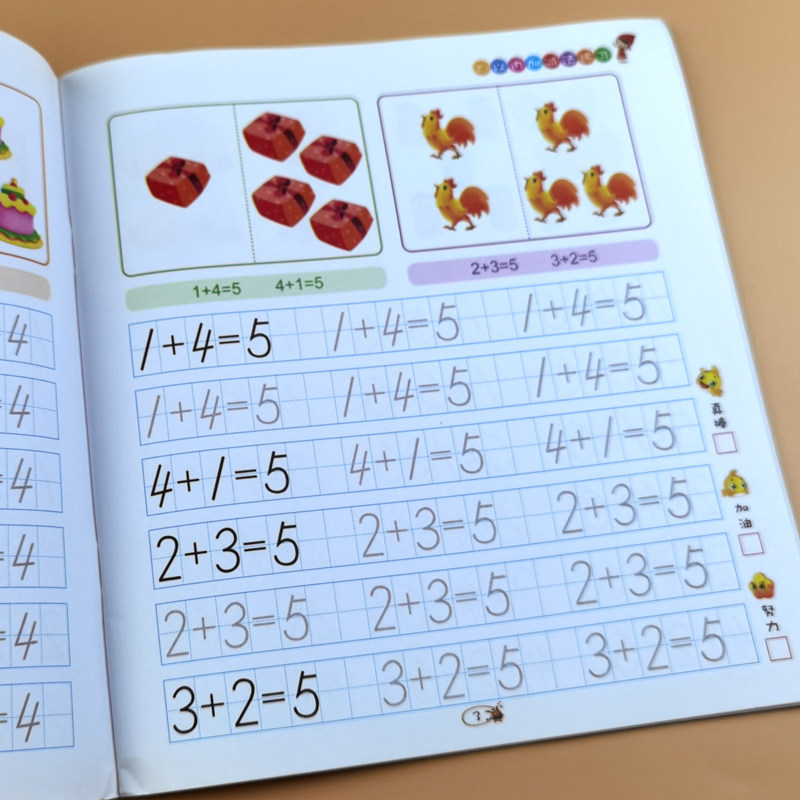 以内加减法练习
1+4=5 4+1=5
2+3=5 3+2=5
1+4=5 1+4=5 1+4=5
1+4=5 1+4=5 1+4=5
4+1=5 4+1=5 4+1=5
2+3=5 2+3=5 2+3=5
2+3=5 2+3=5 2+3=5
3+2=5 3+2=5 3+2=5
真棒
加油
努力
3
=4
=4
=4
=4
=4
=4